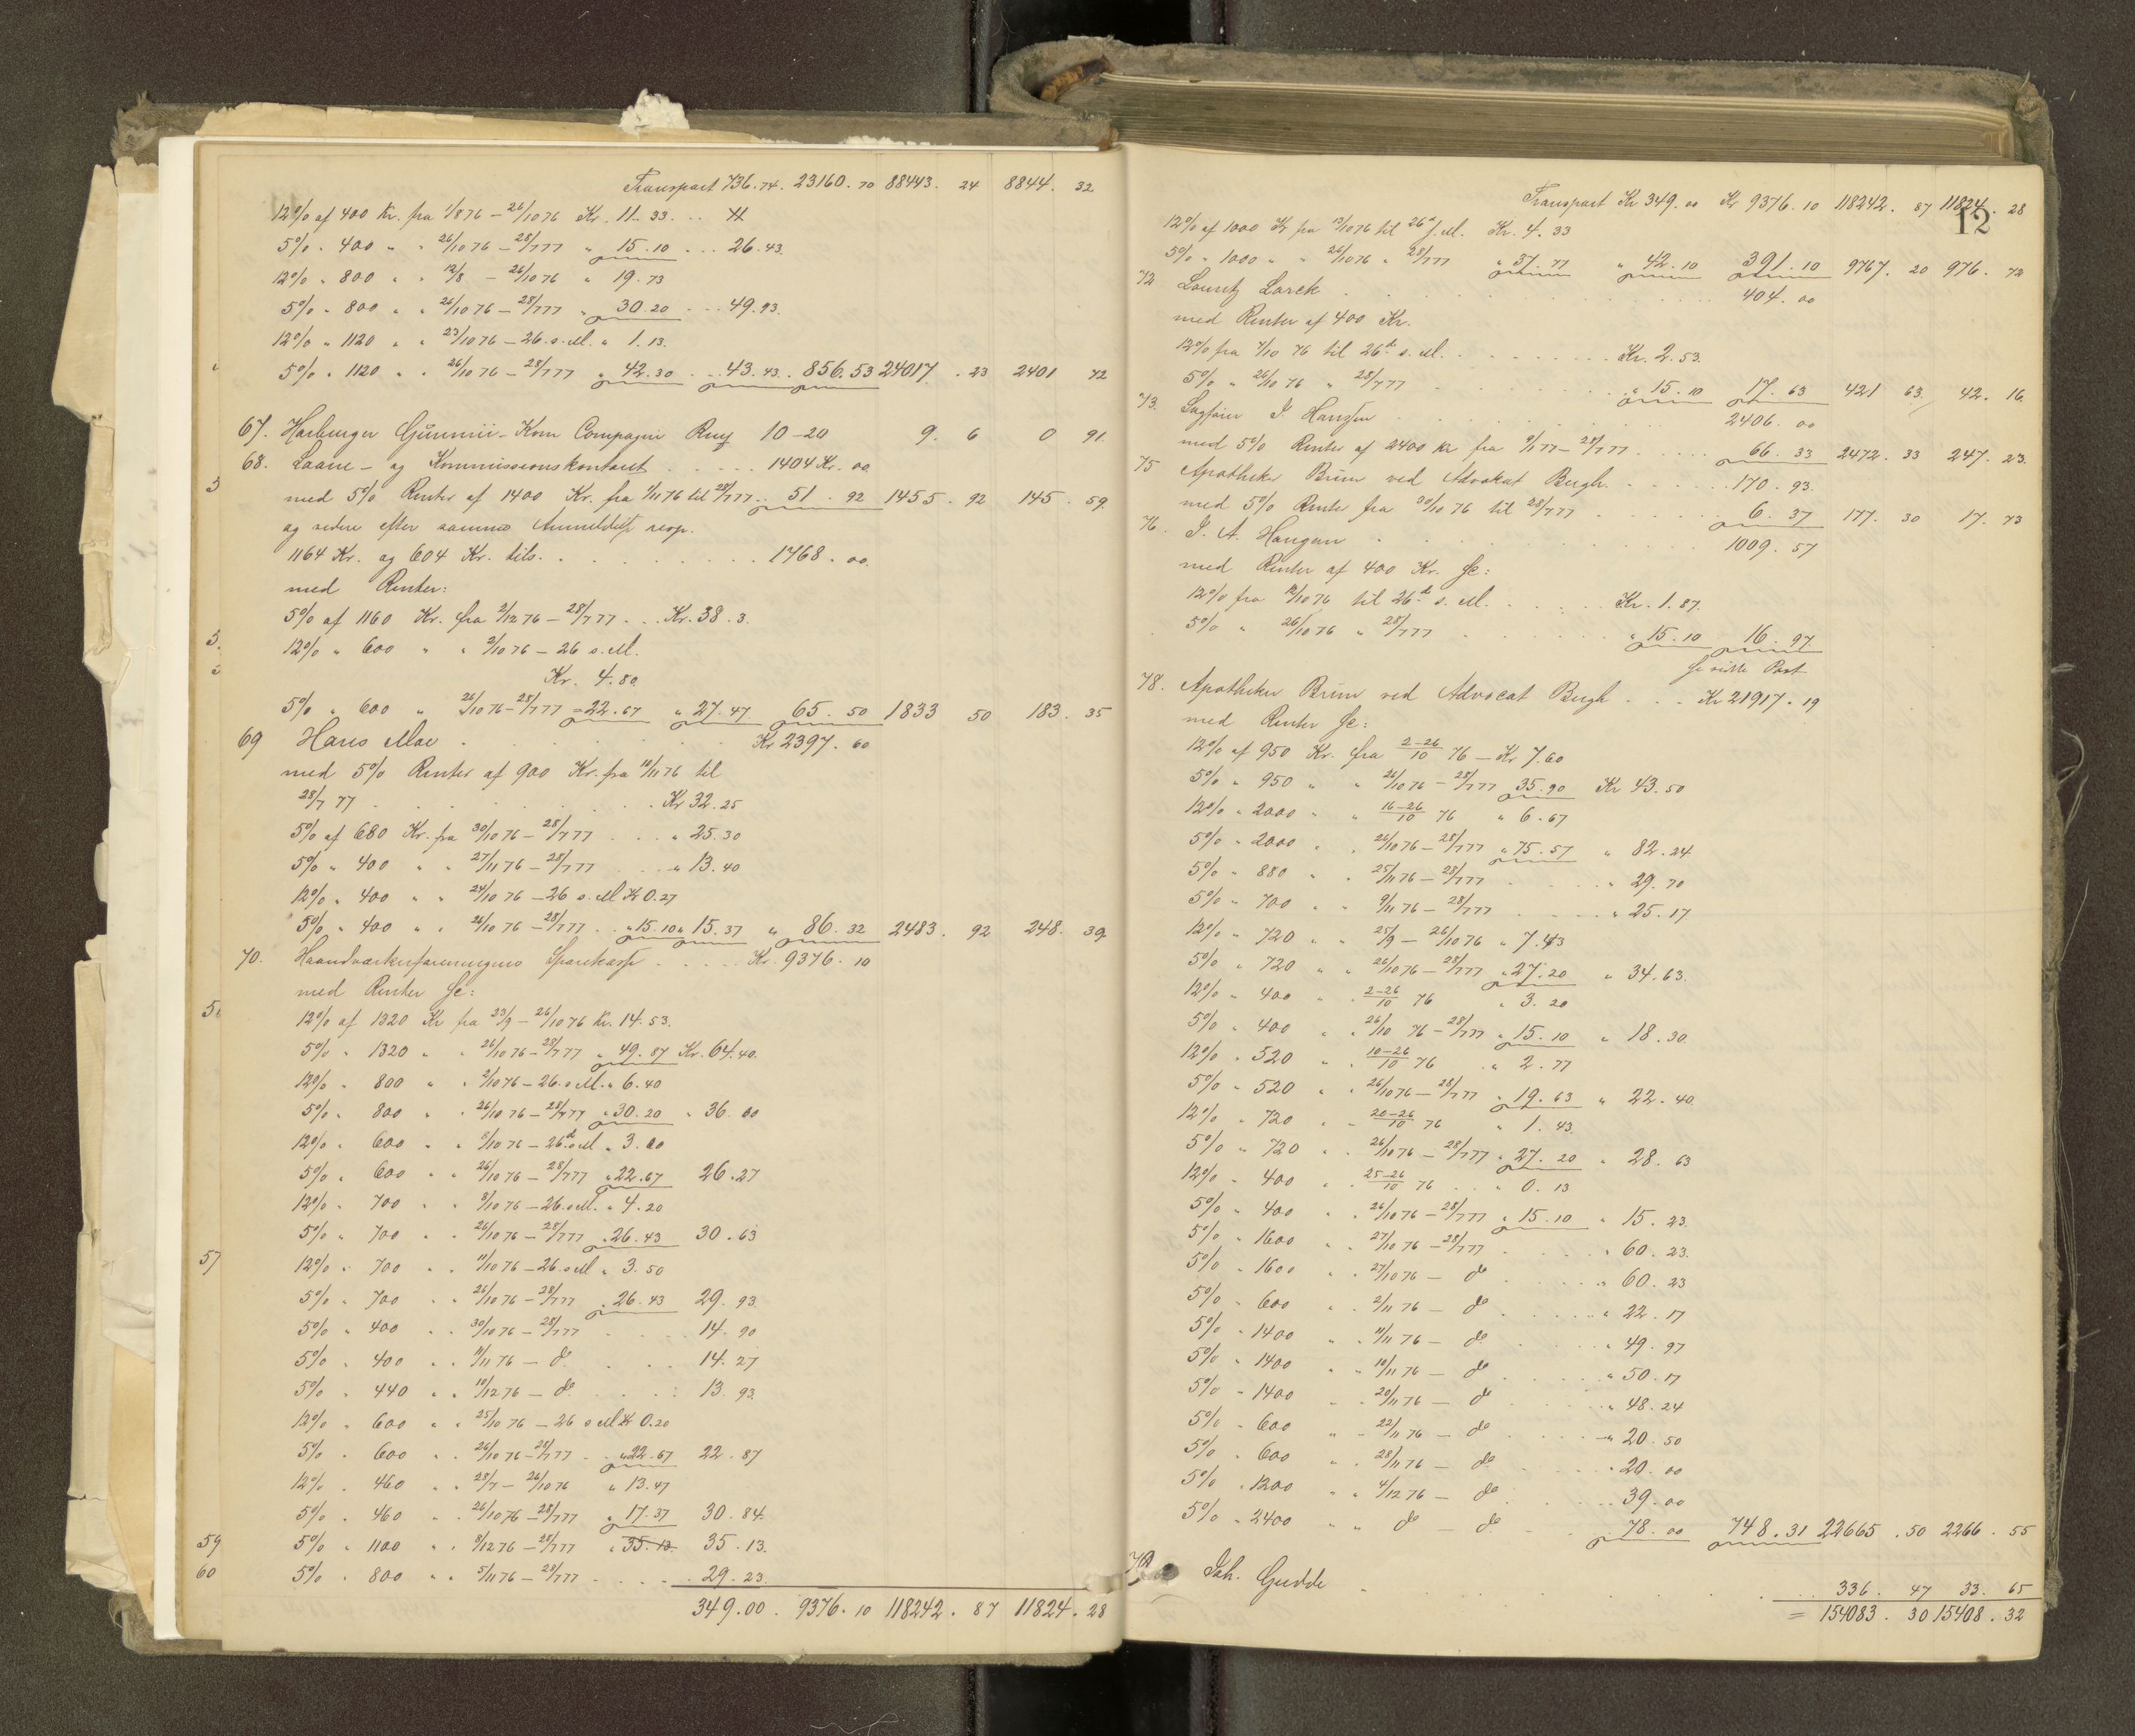 Transport 736.74. 23160.70 88443.24 8844.32
12% af 400 Kr. fra 1/8 76 - 26/10 76 Kr. 11.33.
5% " 400 " " 26/10 76 - 28/7 77 " 15.10 ... 26.43.
12% " 800 " " 12/8 - 26/10 76 " 19.73
5% " 800 " " 26/10 76 - 28/7 77 " 30.20 ... 49.93.
12% " 1120 " " 23/10 76 - 26. s. M. " 1.13.
5% " 1120 " " 26/10 76 - 28/7 77 " 42.30 ... 43.43. 856.53 24017.23 2401 72
67. Harburger Gummi-Kom Compagni Rmf 10-20 9.6 0 91.
68. Laane- og Kommissionskontoret ..... 1404 Kr. 00
med 5% Renter af 1400 Kr. fra 1/11 76 til 28/7 77 .. 51.92 1455.92 145.59.
og videre efter samme Anmeldelse resp.
1164 Kr. og 604 Kr. tils. ........ 1768.00.
med Renter:
5% af 1160 Kr. fra 2/12 76 - 28/7 77 ... Kr. 38.3.
12% " 600 " " 2/10 76 - 26 s. M.
Kr. 4.80.
5% " 600 " 26/10 76 - 28/7 77 = 22.67 " 27.47 65.50 1833 50 183.35
69 Hans Moe ........ Kr 2397.60
med 5% Renter af 900 Kr. fra 10/11 76 til
28/7 77 ........ Kr 32.25
5% af 680 Kr. fra 30/10 76 - 28/7 77 ... " 25.30
5% " 400 " " 27/11 76 - 28/7 77 ... " 13.40
12% " 400 " " 24/10 76 - 26 s. M Kr 0.27
5% " 400 " " 26/10 76 - 28/7 77 .. " 15.10 " 15.37 " 86.32 2483.92 248.39.
70. Haandværkerforeningens Sparekasse ..... Kr. 9376.10
med Renter f:
12% af 1320 Kr fra 23/9 - 26/10 76 Kr. 14.53.
5% " 1320 " " 26/10 76 - 28/7 77 " 49.87 Kr. 64.40.
12% " 800 " " 2/10 76 - 26. s. M. " 6.40
5% " 800 " " 26/10 76 - 28/7 77 " 30.20 " 36.60
12% " 600 " " 8/10 76 - 26d s. M " 3.60
5% " 600 " " 26/10 76 - 28/7 77 " 22.67 26.27
12% " 700 " " 8/10 76 - 26. s. M. " 4.20
5% " 700 " " 26/10 76 - 28/7 77 " 26.43 30.63
12% " 700 " " 11/10 76 - 26. s M " 3.50
5% " 700 " " 26/10 76 - 28/7 77 " 26.43 29.93.
5% " 400 " " 30/10 76 - 28/7 77 .... 14.90
5% " 400 " " 11/11 76 - do .... 14.27
5% " 440 " " 10/12 76 - do .... 13.93.
12% " 600 " " 25/10 76 - 26 s M Kr 0.20
5% " 600 " " 26/10 76 - 28/7 77 .. " 22.67 22.87
12% " 460 " " 28/7 - 26/10 76 " 13.47
5% " 460 " " 26/10 76 - 28/7 77 " 17.37 30.84.
59 5% " 1100 " " 8/12 76 - 28/7 77 " 35.13. 35.13.
60 5% " 800 " " 5/11 76 - 28/7 77 .... 29.23.
349.00. 9376.10 118242.87 11824.28
57
Transport Kr 349.00 Kr 9376.10 118242.87 11824.28
12
12% af 1000 Kr fra 13/10 76 til 26d s. M. Kr. 4.33
5% " 1000 " " 26/10 76 " 28/7 77 " 37.77 " 42.10 391.10 9767.20 976.72
72 Lauritz Larck ........ 404.00
med Renter af 400 Kr.
12% fra 7/10 76 til 26d. s. M. ....... Kr. 2.53.
5% " 26/10 76 " 28/7 77 ....... " 15.10 17.63 421 63. 42.16
73. Sagfører J. Hansen ........ 2406.00
med 5% Renter af 2400 Kr fra 9/1 77 - 28/7 77 ..... 66.33 2472.33 247.23.
75 Apotheker Brün ved Advokat Bugh. ...... 170.93.
med 5% Renter fra 30/10 76 til 28/7 77 ...... 6.37 177.30 17.73
76. J. A. Haugan ........ 1009.57
med Renter af 400 Kr. f:
12% fra 12/10 76 til 26d s. M. ..... Kr. 1.87.
5% " 26/10 76 " 28/7 77 ....... " 15.10 16.97.
se sidste Post
78. Apotheker Brün ved Advocat Bugh ... Kr 21917.19
med Renter f:
12% af 950 Kr. fra 2-26/10 76 - Kr 7.60
5% " 950 " " 26/10 76 - 28/7 77 35.90 Kr 43.50
12% " 2000 " " 16-26/10 76 " 6.67
5% " 2000 " " 26/10 76 - 28/7 77 " 75.57 " 82.24
5% " 880 " " 25/11 76 - 28/7 77 ..... " 29.70
5% " 700 " " 9/11 76 - 28/7 77 ..... " 25.17
12% " 720 " " 25/9 - 26/10 76 " 7.43
5% " 720 " " 26/10 76 - 28/7 77 " 27.20 " 34.63.
12% " 400 " " 2-26/10 76 " 3.20
5% " 400 " " 26/10 76 - 28/7 77 " 15.10 " 18.30.
12% " 520 " " 10-26/10 76 " 2.77
5% " 520 " " 26/10 76 - 28/7 77 " 19.63 " 22.40.
12% " 720 " " 20-26/10 76 " 1.43.
5% " 720 " " 26/10 76 - 28/7 77 " 27.20 " 28.63
12% " 400 " " 25-26/10 76 .. " 0.13
5% " 400 " " 26/10 76 - 28/7 77 " 15.10 " 15.23.
5% " 1600 " " 27/10 76 - 28/7 77 ..... " 60.23.
5% " 1600 " " 27/10 76 - do ..... " 60.23
5% " 600 " " 2/11 76 - do ..... " 22.17
5% " 1400 " " 11/11 76 - do ..... " 49.97
5% " 1400 " " 10/11 76 - do ..... " 50.17
5% " 1400 " " 20/11 76 - do ..... " 48.24
5% " 600 " " 22/11 76 - do ..... " 20.50
5% " 600 " " 28/11 76 - do ..... " 20.00
5% " 1200 " " 4/12 76 - do ..... 39.00
5% " 2400 " " do - do - . 78.00 748.31 22665.50 2266.55
Joh. Gudde ........ 336.47 33.65
= 154083.30 15408.32